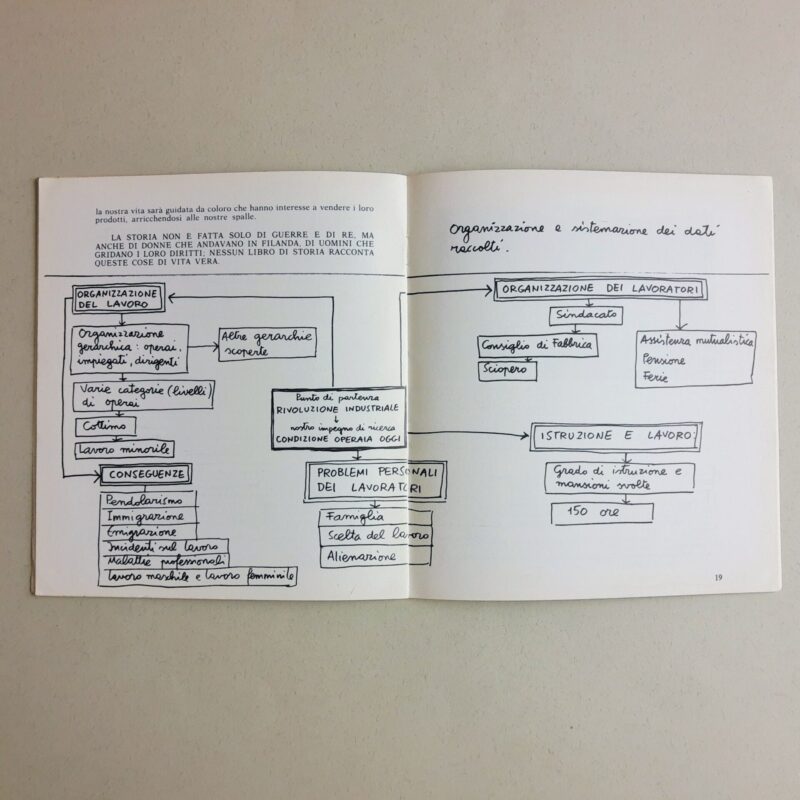 la nostra vita sarà guidata da coloro che hanno interesse a vendere i loro
prodotti, arricchendosi alle nostre spalle.
LA STORIA NON E FATTA SOLO DI GUERRE E DI RE, MA
ANCHE DI DONNE CHE ANDAVANO IN FILANDA, DI UOMINI CHE
GRIDANO I LORO DIRITTI; NESSUN LIBRO DI STORIA RACCONTA
QUESTE COSE DI VITA VERA.
ORGANIZZAZIONE
DEL LAVORO
Organizzazione
gerarchica: operai,
impiegati, dirigenti
Altre gerarchie
scoperte
Varie categorie (livelli)
di operai
Cottimo
Lavoro minorile
CONSEGUENZE
Pendolarismo
Immigrazione
Emigrazione
Incidenti sul lavoro
Malattie professionali
Lavoro maschile e lavoro femminile
Punto di partenza
RIVOLUZIONE INDUSTRIALE
nostro impegno di ricerca
CONDIZIONE OPERAIA OGGI
PROBLEMI PERSONALI
DEI LAVORATORI
Famiglia
Scelta del lavoro
Alienazione
Organizzazione e sistemazione dei dati
raccolti.
ORGANIZZAZIONE DEI LAVORATORI
Sindacato
Consiglio di Fabbrica
Sciopero
Assistenza mutualistica
Pensione
Ferie
ISTRUZIONE E LAVORO:
Grado di istruzione e
mansioni svolte
150 ore
19